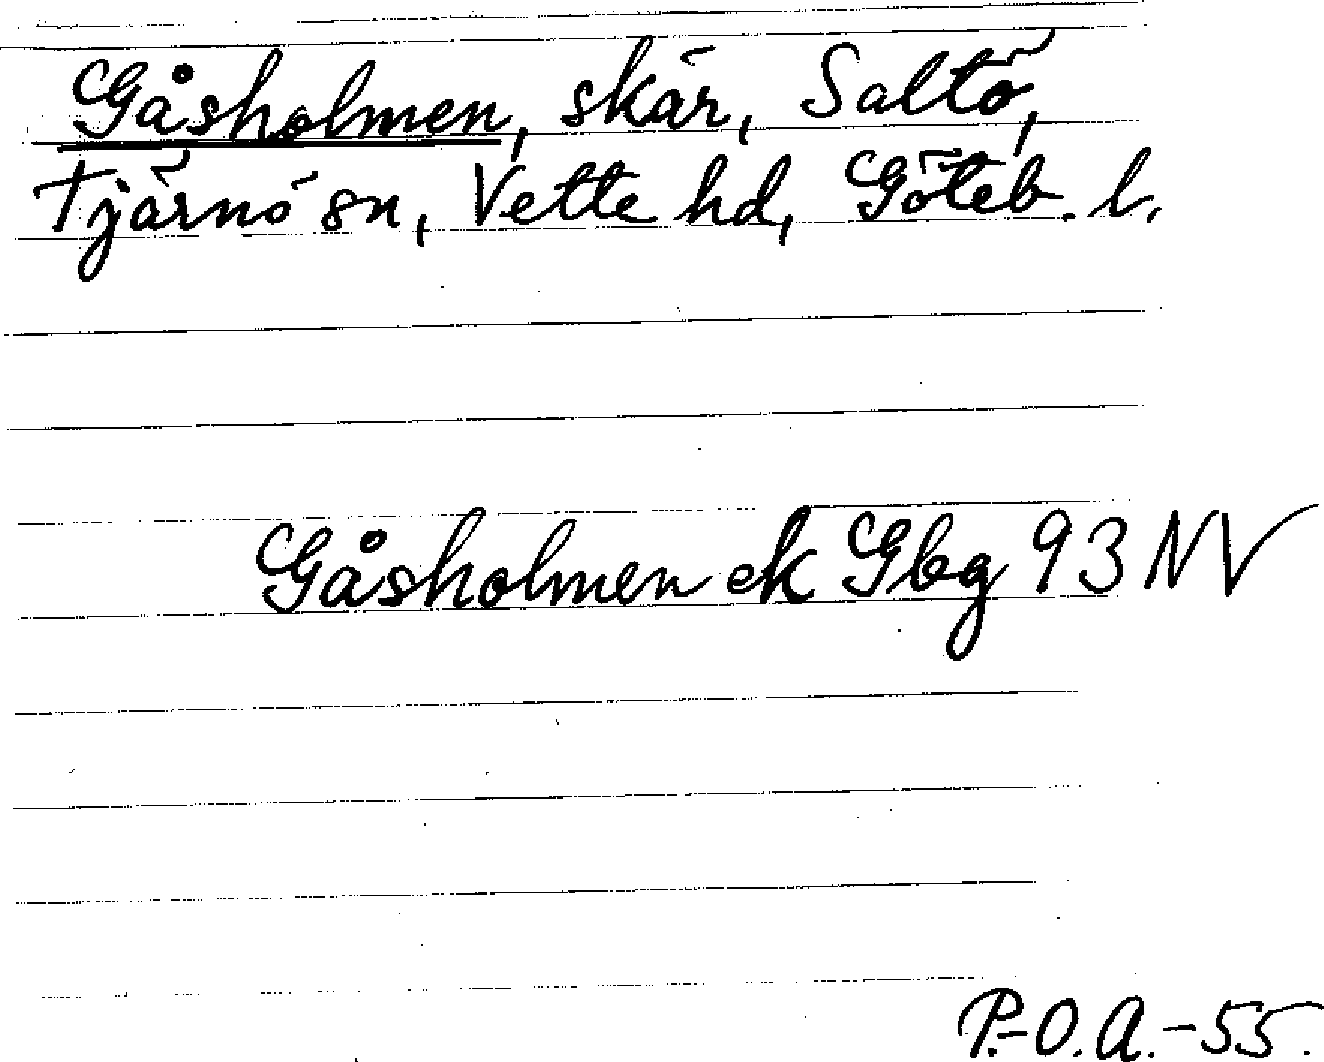 Gåsholmen, skär, Saltö,
Tjärnö sn, Vette hd, Göteb. l.
Gåsholmen ek Gbg 93 NV
P.-O.A.-55.